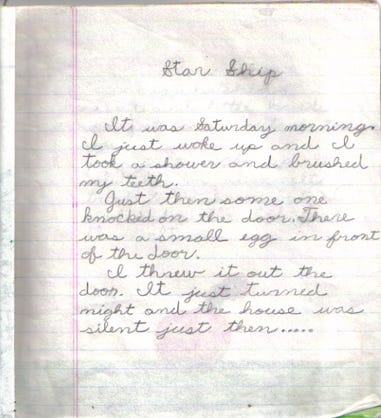 Star Ship
It was Saturday morning.
I just woke up and I
took a shower and brushed
my teeth.
Just then some one
knocked on the door. There
was a small egg in front
of the door.
I threw it out the
door. It just turned
night and the house was
silent just then.....